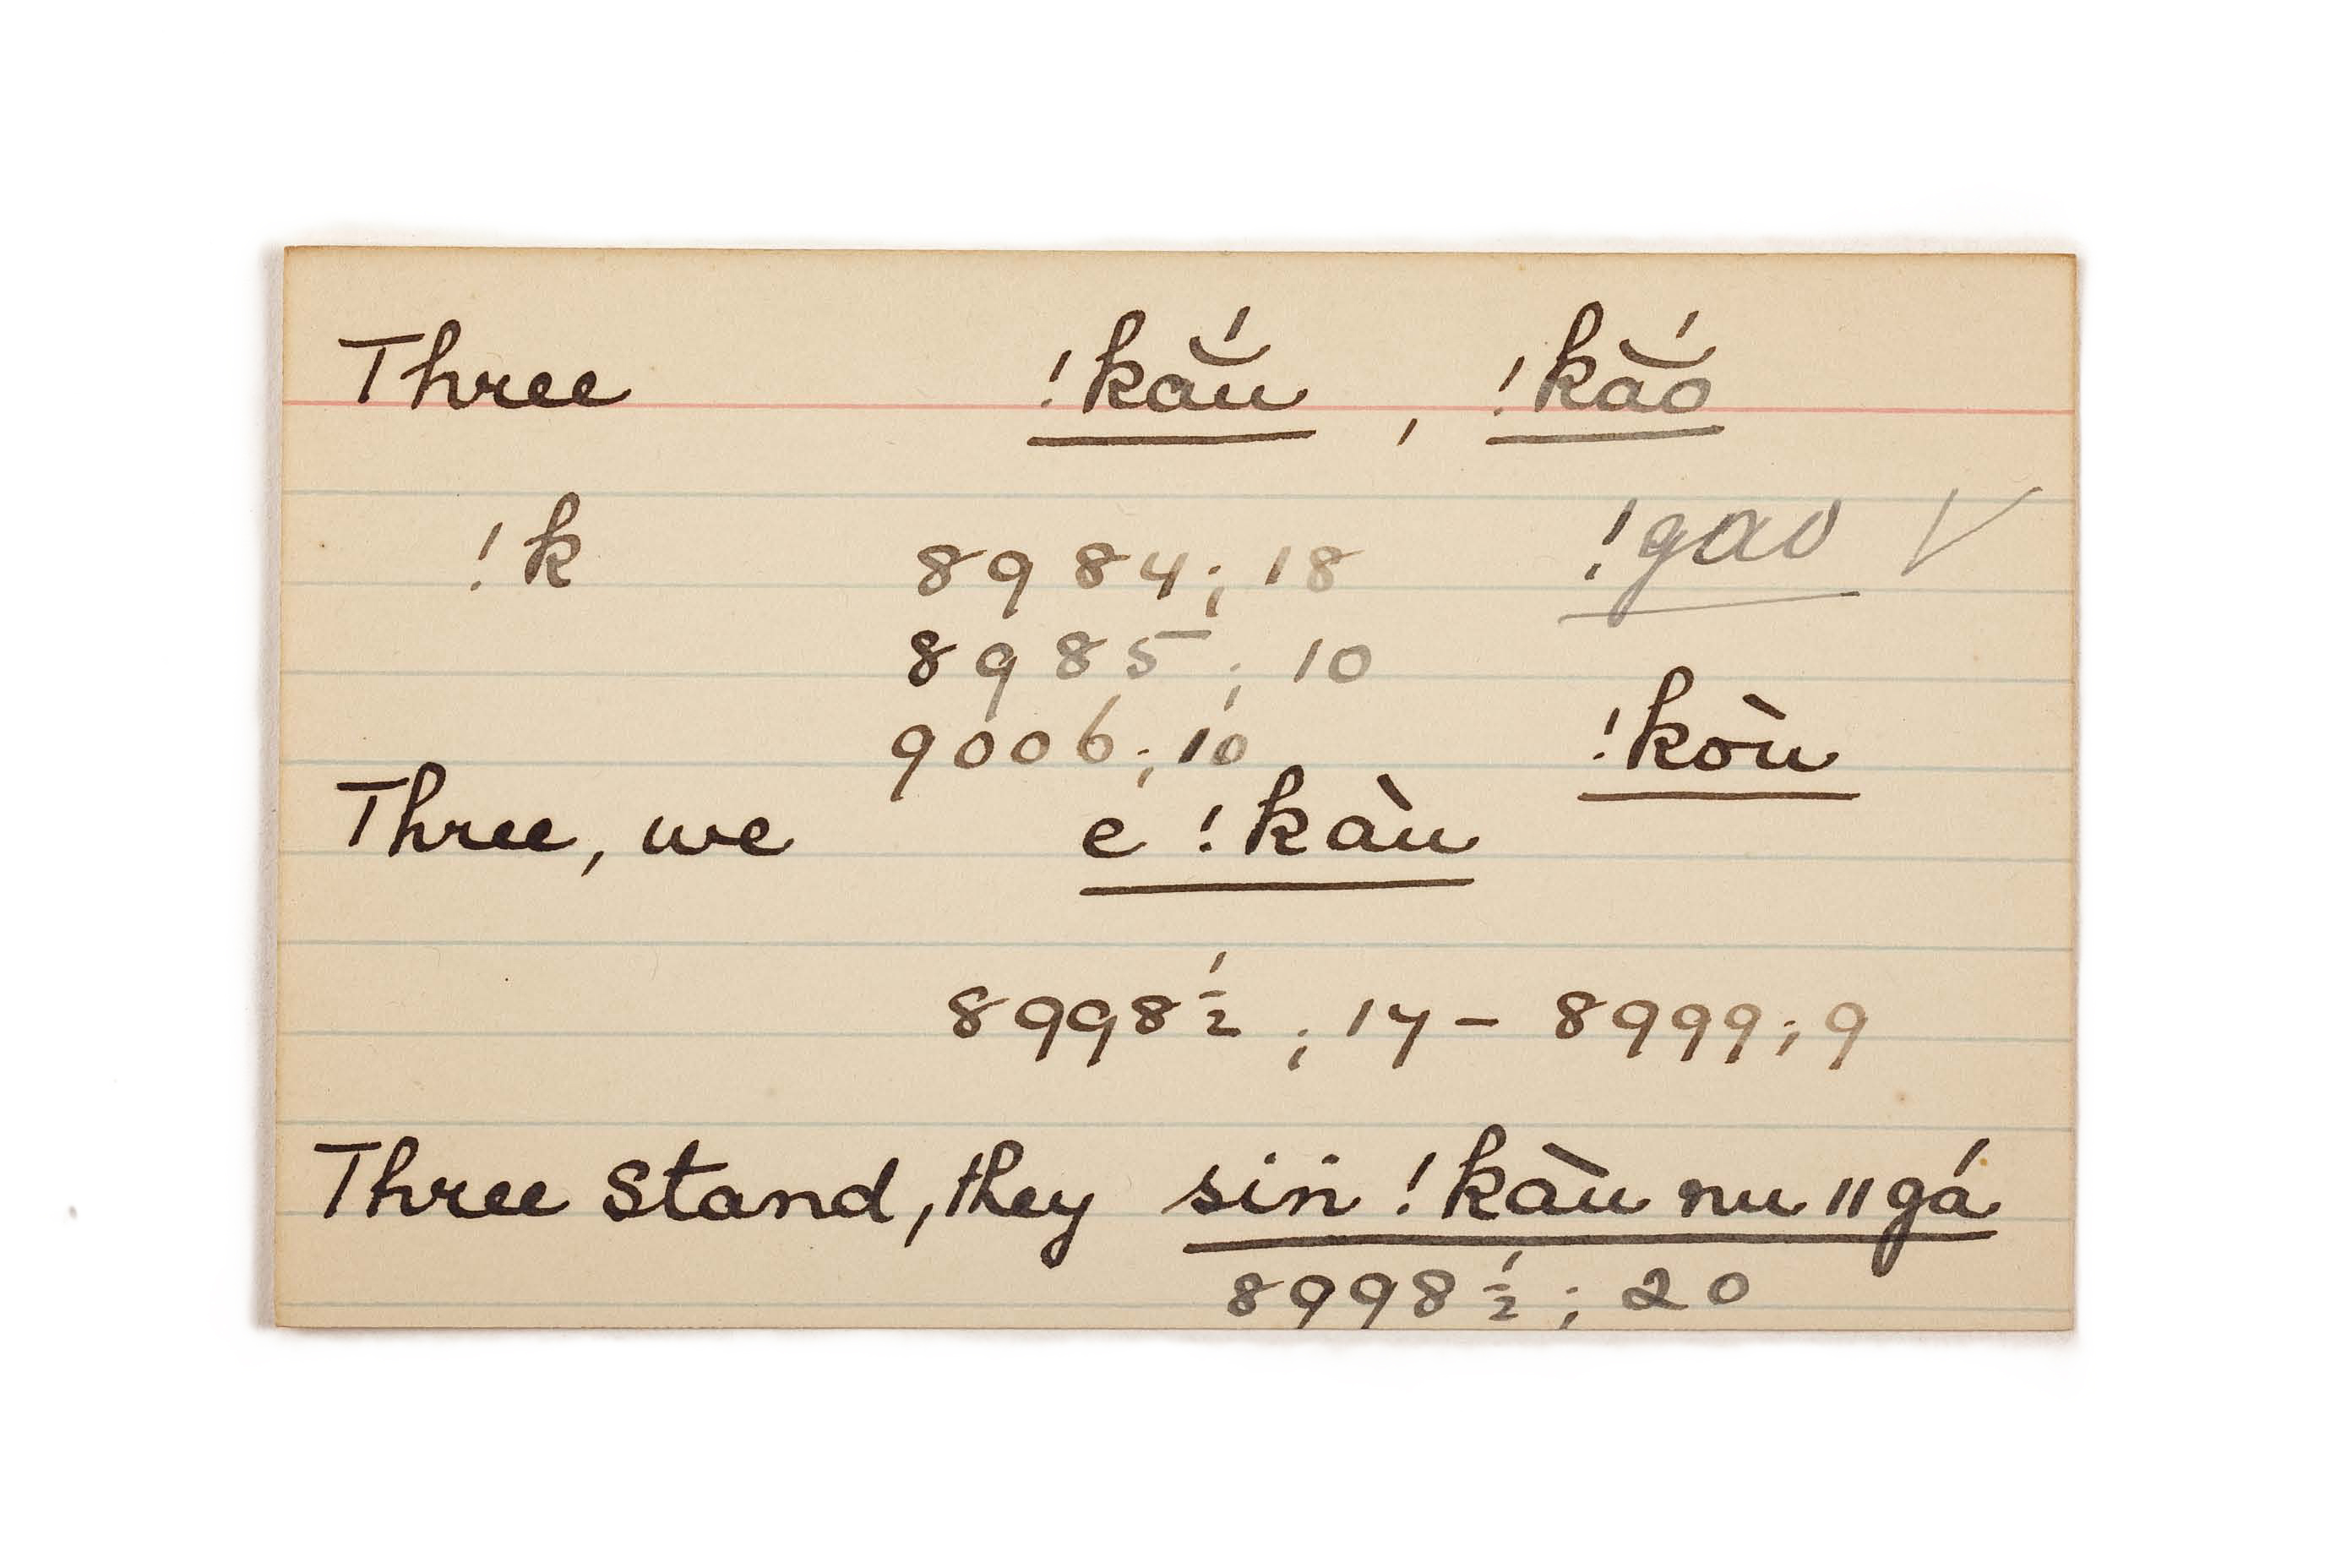 Three !kắu , !kắo
!k 8984; 18 !gao √
8985; 10
9006; 10 !kòu
Three, we e !kàu
8998½; 17 – 8999; 9
Three stand, they sin !kàu nu ‖gá
8998½; 20